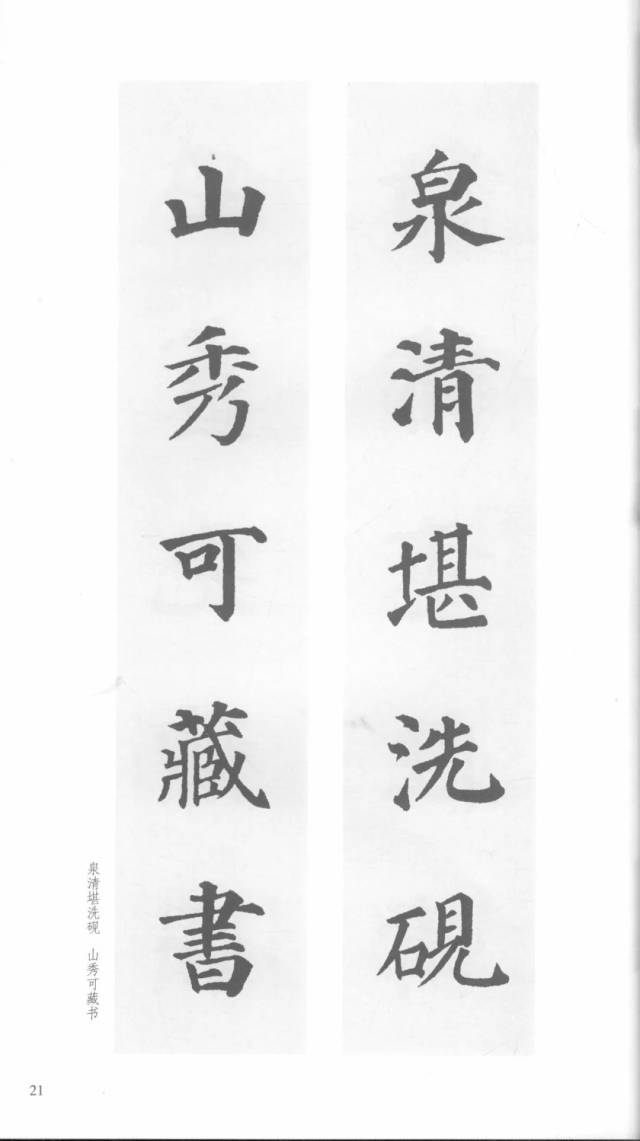 泉清堪洗硯
山秀可藏書
泉清堪洗砚 山秀可藏书
21